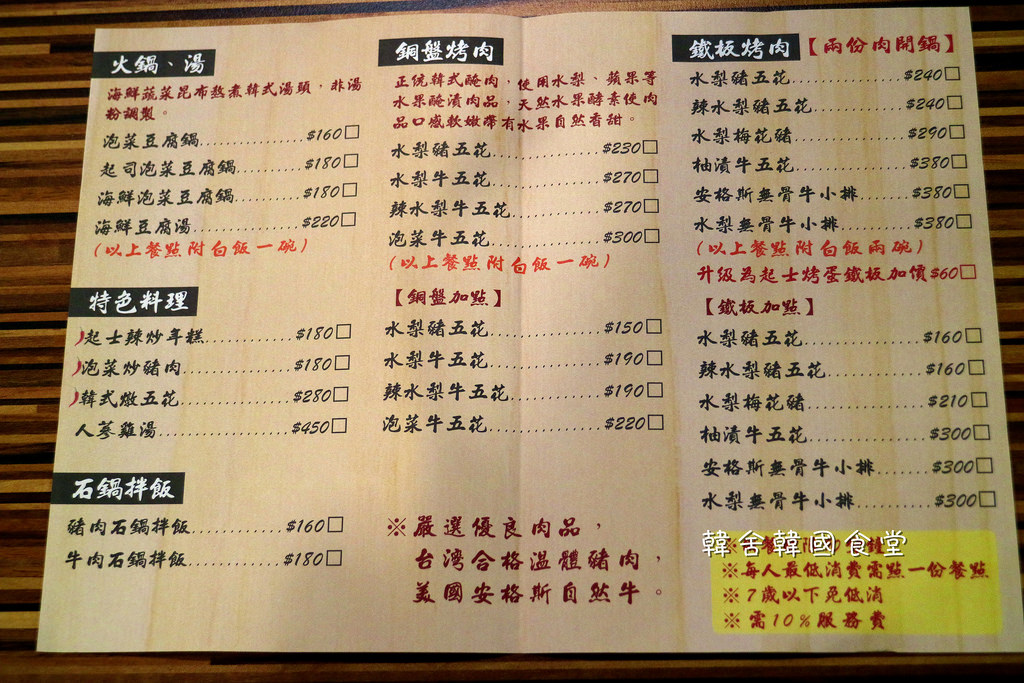 火鍋、湯
海鮮蔬菜昆布熬煮韓式湯頭，非湯
粉調製。
泡菜豆腐鍋..................$160□
起司泡菜豆腐鍋..........$180□
海鮮泡菜豆腐鍋..........$180□
海鮮豆腐湯..................$220□
(以上餐點附白飯一碗)
特色料理
起士辣炒年糕.............$180□
泡菜炒豬肉................$180□
韓式燉五花................$280□
人蔘雞湯...................$450□
石鍋拌飯
豬肉石鍋拌飯.............$160□
牛肉石鍋拌飯.............$180□
銅盤烤肉
正統韓式醃肉，使用水梨、蘋果等
水果醃漬肉品，天然水果酵素使肉
品口感軟嫩帶有水果自然香甜。
水梨豬五花................$230□
水梨牛五花................$270□
辣水梨牛五花.............$270□
泡菜牛五花................$300□
(以上餐點附白飯一碗)
【銅盤加點】
水梨豬五花................$150□
水梨牛五花................$190□
辣水梨牛五花.............$190□
泡菜牛五花................$220□
※嚴選優良肉品，
台灣合格溫體豬肉，
美國安格斯自然牛。
鐵板烤肉【兩份肉開鍋】
水梨豬五花................$240□
辣水梨豬五花.............$240□
水梨梅花豬................$290□
柚漬牛五花................$380□
安格斯無骨牛小排.......$380□
水梨無骨牛小排..........$380□
(以上餐點附白飯兩碗)
升級為起士烤蛋鐵板加價$60□
【鐵板加點】
水梨豬五花................$160□
辣水梨豬五花.............$160□
水梨梅花豬................$210□
柚漬牛五花................$300□
安格斯無骨牛小排.......$300□
水梨無骨牛小排..........$300□
韓舍韓國食堂
※每人最低消費需點一份餐點
※7歲以下免低消
※需10%服務費